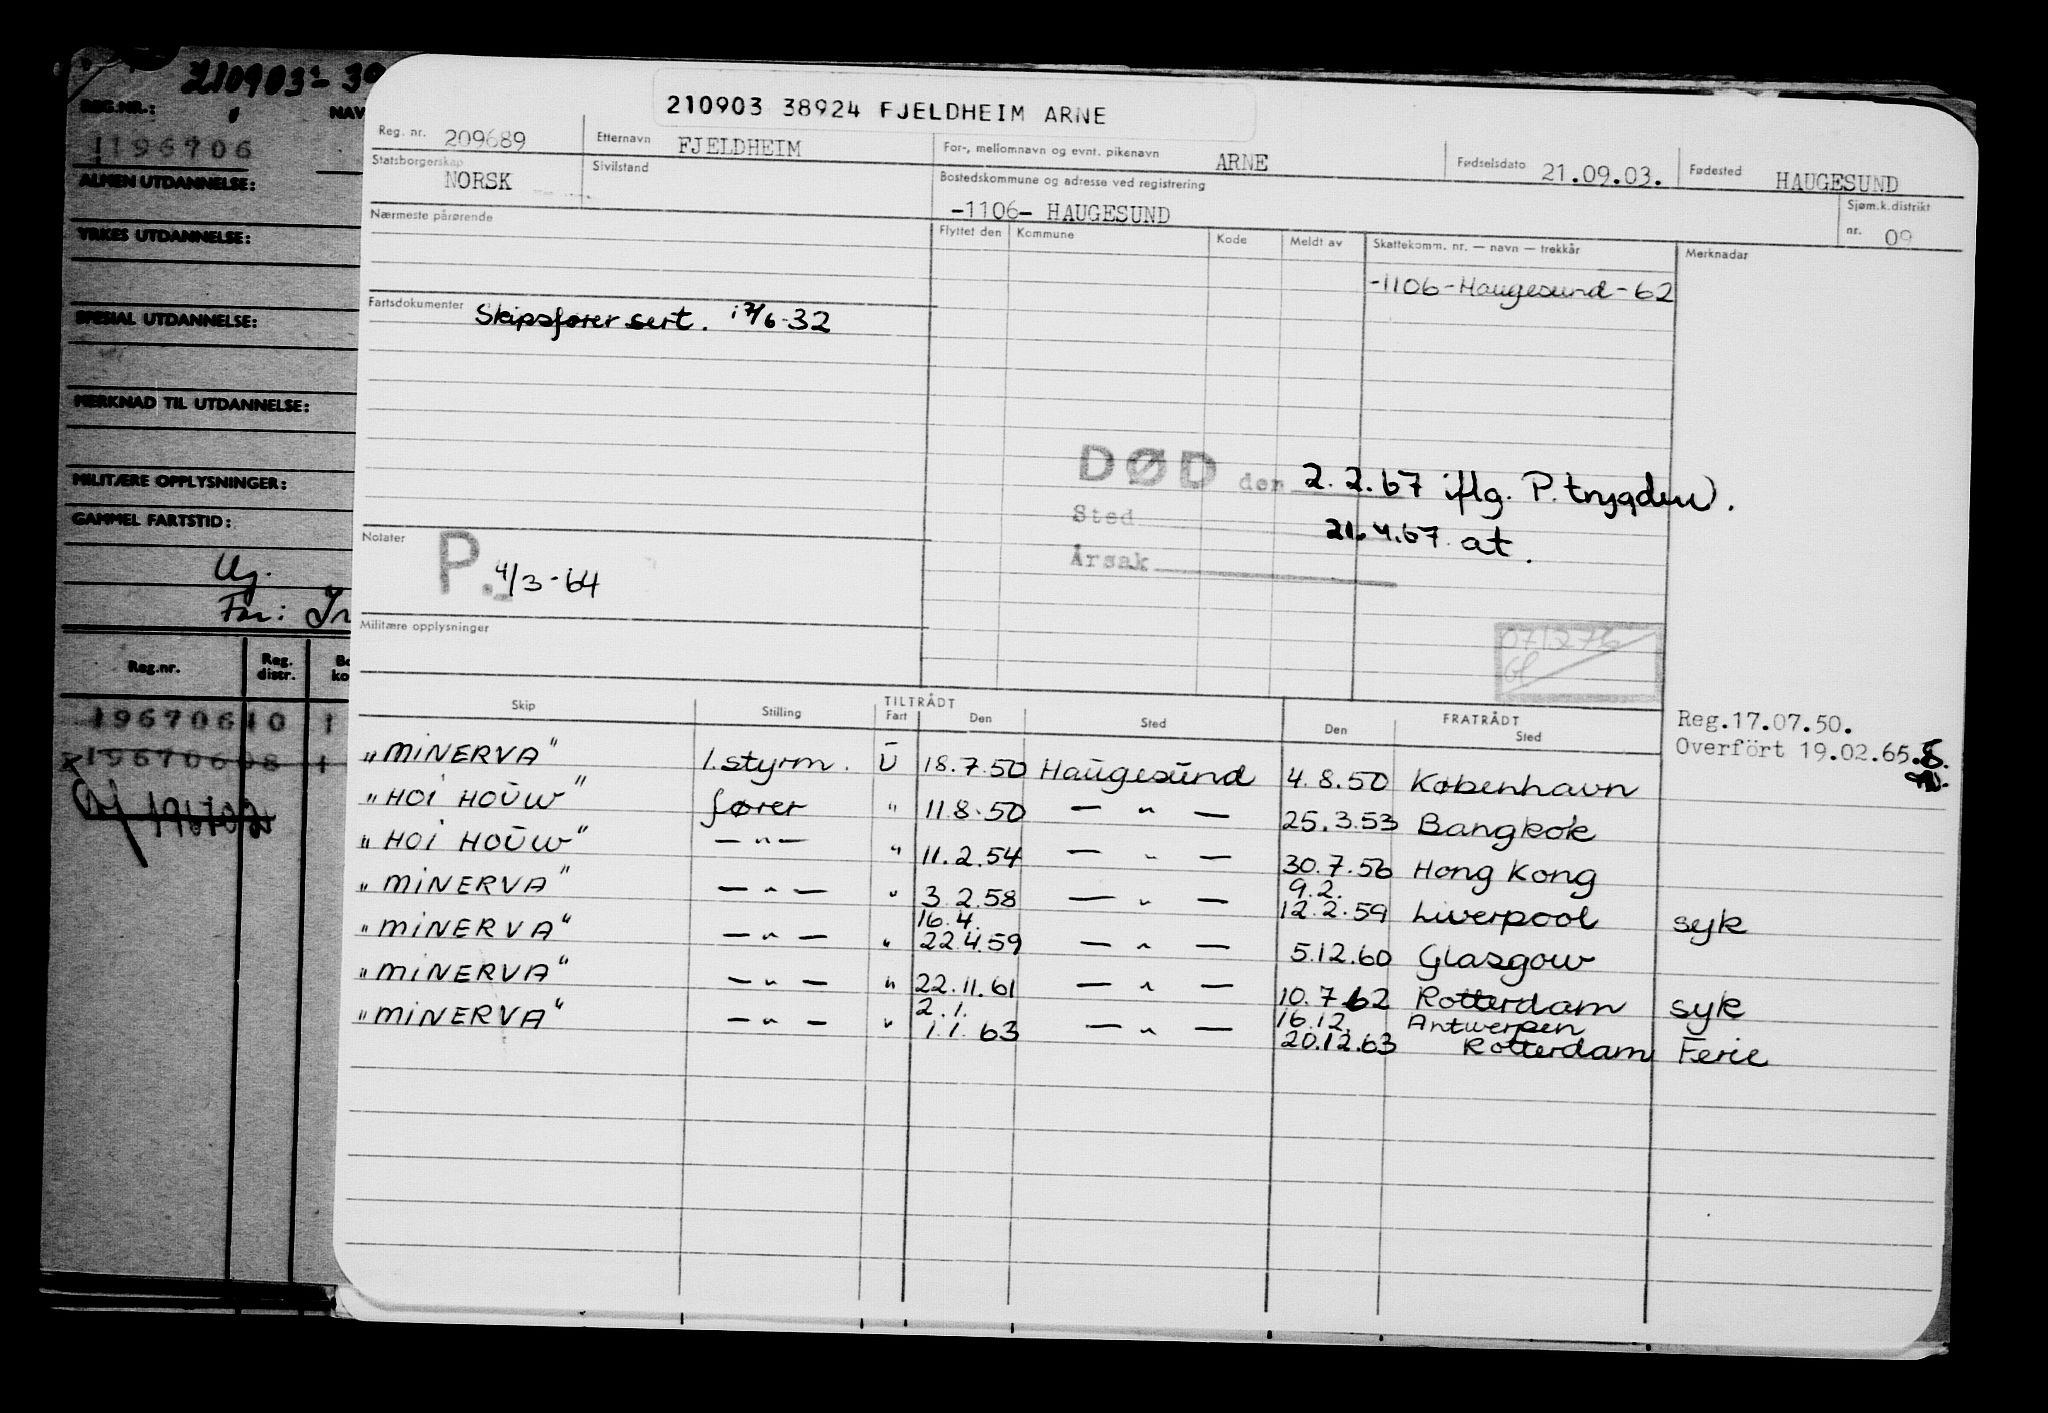 210903 38924 FJELDHEIM ARNE
Reg. nr. 209689 Etternavn FJELDHEIM For-, mellomnavn og evnt. pikenavn ARNE Fødselsdato 21.09.03. Fødested HAUGESUND
Statsborgerskap NORSK Sivilstand Bostedskommune og adresse ved registrering -1106- HAUGESUND Sjøm.k.distrikt nr. 09
Nærmeste pårørende Flyttet den Kommune Kode Meldt av Skattekomm. nr. — navn — trekkår Merknadar
-1106-Haugesund-62
Fartsdokumenter Skipsfører sert. 17/6-32
DØD den 2.2.67 iflg. P.trygden.
Sted 21.4.67 at.
Årsak
Notater P. 4/3-64
Militære opplysninger
071276
Reg.17.07.50.
Overført 19.02.65.
Skip Stilling TILTRÅDT Fart Den Sted FRATRÅDT Den Sted
"MINERVA" 1.styrm. U 18.7.50 Haugesund 4.8.50 København
"HOI HOUW" fører " 11.8.50 — " — 25.3.53 Bangkok
"HOI HOUW" — " — " 11.2.54 — " — 30.7.56 Hong Kong
"MINERVA" — " — " 3.2.58 — " — 9.2. 12.2.59 Liverpool syk
"MINERVA" — " — " 16.4. 22.4.59 — " — 5.12.60 Glasgow
"MINERVA" — " — " 22.11.61 — " — 10.7.62 Rotterdam syk
"MINERVA" — " — " 2.1. 1.1.63 — " — 16.12. Antwerpen
20.12.63 Rotterdam Ferie
210903
REG.NR.: NAV
1196706
ALMEN UTDANNELSE:
YRKES UTDANNELSE:
SPESIAL UTDANNELSE:
MERKNAD TIL UTDANNELSE:
MILITÆRE OPPLYSNINGER:
GAMMEL FARTSTID:
Reg.nr. Reg. distr. Bo ko
19670610 1
19670608 1